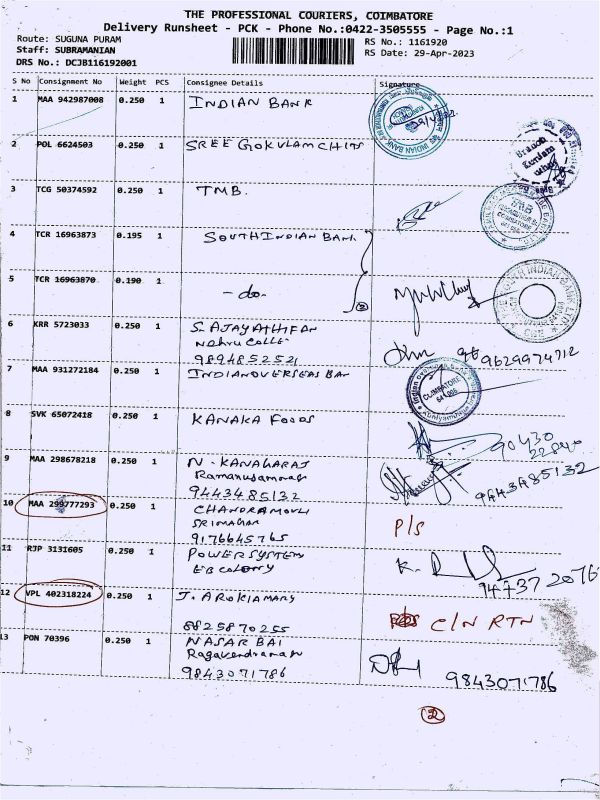 THE PROFESSIONAL COURIERS, COIMBATORE
Delivery Runsheet - PCK - Phone No.:0422-3505555 - Page No.:1
Route: SUGUNA PURAM
RS No.: 1161920
Staff: SUBRAMANIAN
RS Date: 29-Apr-2023
DRS No.: DCJB116192001
S No Consignment No Weight PCS Consignee Details Signature
1 MAA 942987008 0.250 1 INDIAN BANK
2 POL 6624503 0.250 1 SREE GOKULAM CHITS
Branch
3 TCG 50374592 0.250 1 TMB.
TMB
4 TCR 16963873 0.195 1 SOUTH INDIAN BANK
5 TCR 16963870 0.190 1 - do -
SOUTH INDIAN BANK LTD
6 KRR 5723033 0.250 1 S. AJAY
Nehru
989485252
9629974712
7 MAA 931272184 0.250 1 INDIAN OVERSEAS BAN
COIMBATORE
8 SVK 65072418 0.250 1 KANAKA FOODS
90430
22840
9 MAA 298678218 0.250 1 N. KANAGARAJ
9443485132
9443485132
10 MAA 299777293 0.250 1 CHANDRAMOULI
SRIMAGAN
9176645765
P/S
11 RJP 3131605 0.250 1 POWER SYSTEM
EB COLONY
12 VPL 402318224 0.250 1 J. AROKIAMARY
8825870255
C/N RTN
13 PON 70396 0.250 1 NASAR BAI
9843071786
9843071786
2